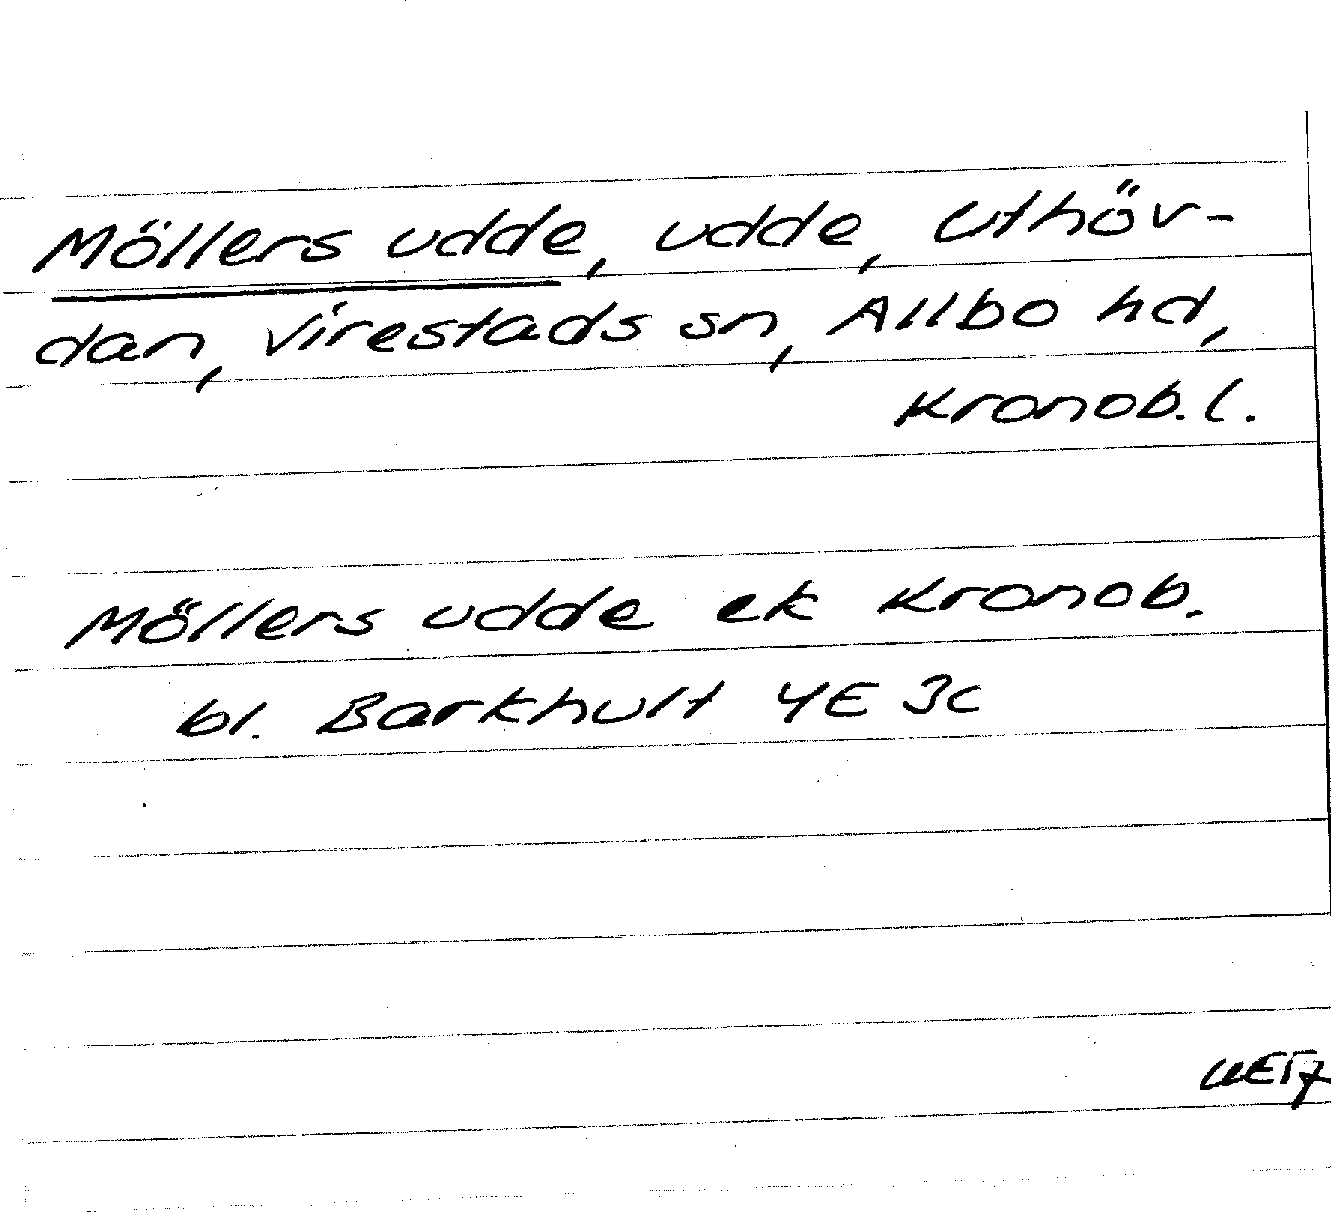 Möllers udde, udde, Uthöv-
dan, Virestads sn, Allbo hd,
Kronob. l.
Möllers udde ek Kronob.
bl. Barkhult 4E 3c